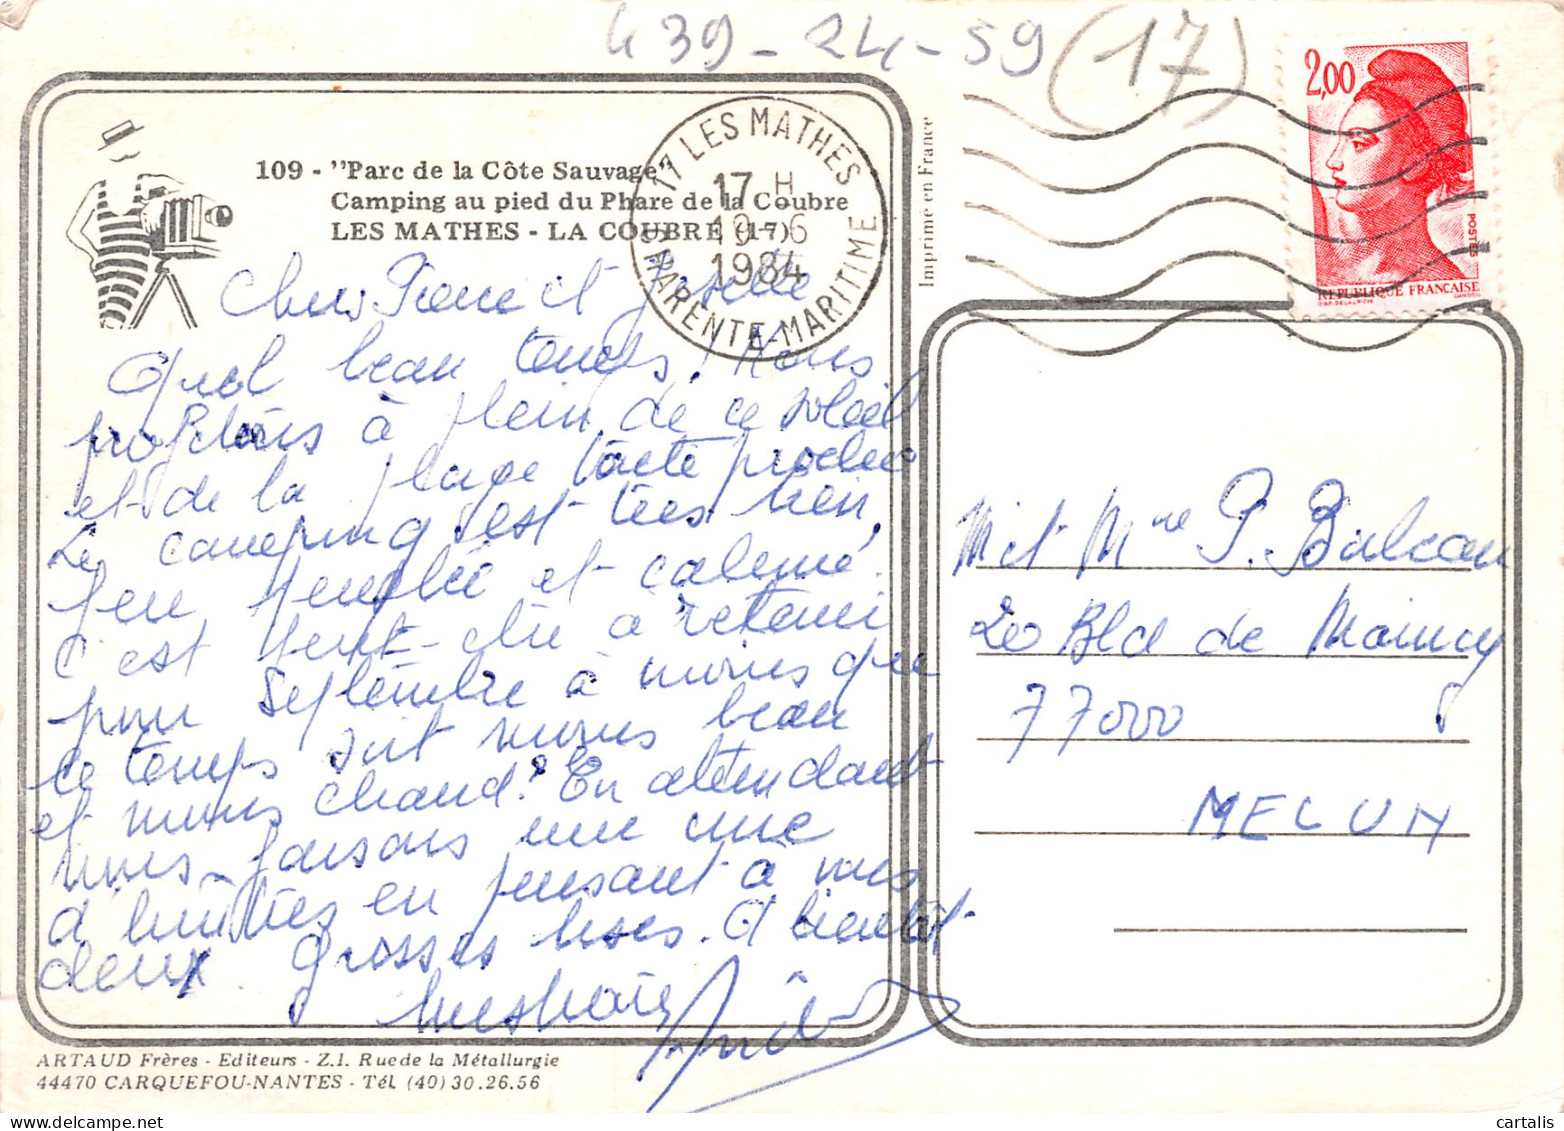 439-24-59 (17)
109 - "Parc de la Côte Sauvage"
Camping au pied du Phare de la Coubre
LES MATHES - LA COUBRE (17)
17 LES MATHES
17 H
19-6
1984
CHARENTE-MARITIME
Imprimé en France
2,00
POSTES
REPUBLIQUE FRANÇAISE
Chers Pierre et
Quel beau temps! Nous
profitons à plein de ce soleil
et de la plage toute proche
Le camping est très bien,
peu peuplé et calme.
C'est peut-être à retenir
pour Septembre à moins que
le temps soit moins beau
et moins chaud! En attendant
nous faisons une cure
d'huîtres en pensant à vous
deux. Grosses bises. A bientôt
M et Mme P. Balcau
20 Bld de Maincy
77000
MELUN
ARTAUD Frères - Editeurs - Z.I. Rue de la Métallurgie
44470 CARQUEFOU-NANTES - Tél. (40) 30.26.56
cartalis